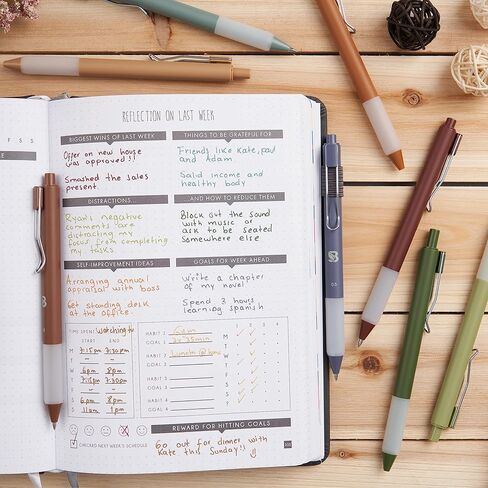 REFLECTION ON LAST WEEK
BIGGEST WINS OF LAST WEEK
THINGS TO BE GRATEFUL FOR
Offer on new house
was approved!!
Smashed the sales
present.
Friends like Kate, Paul
and Adam.
Salid income and
healthy body
DISTRACTIONS...
...AND HOW TO REDUCE THEM
Ryan's negative
comments are
distracting my
focus from completing
my tasks.
Block out the sound
with music or
ask to be seated
somewhere else
SELF-IMPROVEMENT IDEAS
GOALS FOR WEEK AHEAD
Arranging annual
appraisal with boss
Get standing desk
at the office.
Write a chapter
of my novel
Spend 3 hours
learning spanish
TIME SPENT watching tv
START END
M 7:15pm 7:30pm
T
W 6pm 8pm
T 7:15pm 7:30pm
F
S 6pm 8pm
S 11am 1pm
HABIT 1 Gym
GOAL 1
HABIT 2
GOAL 2
HABIT 3
GOAL 3
HABIT 4
GOAL 4
1 2 3 4
M
T
W
T
F
S
S
CHECKED NEXT WEEK'S SCHEDULE
REWARD FOR HITTING GOALS
Go out for dinner with
Kate this Sunday!!
F S S
0.5